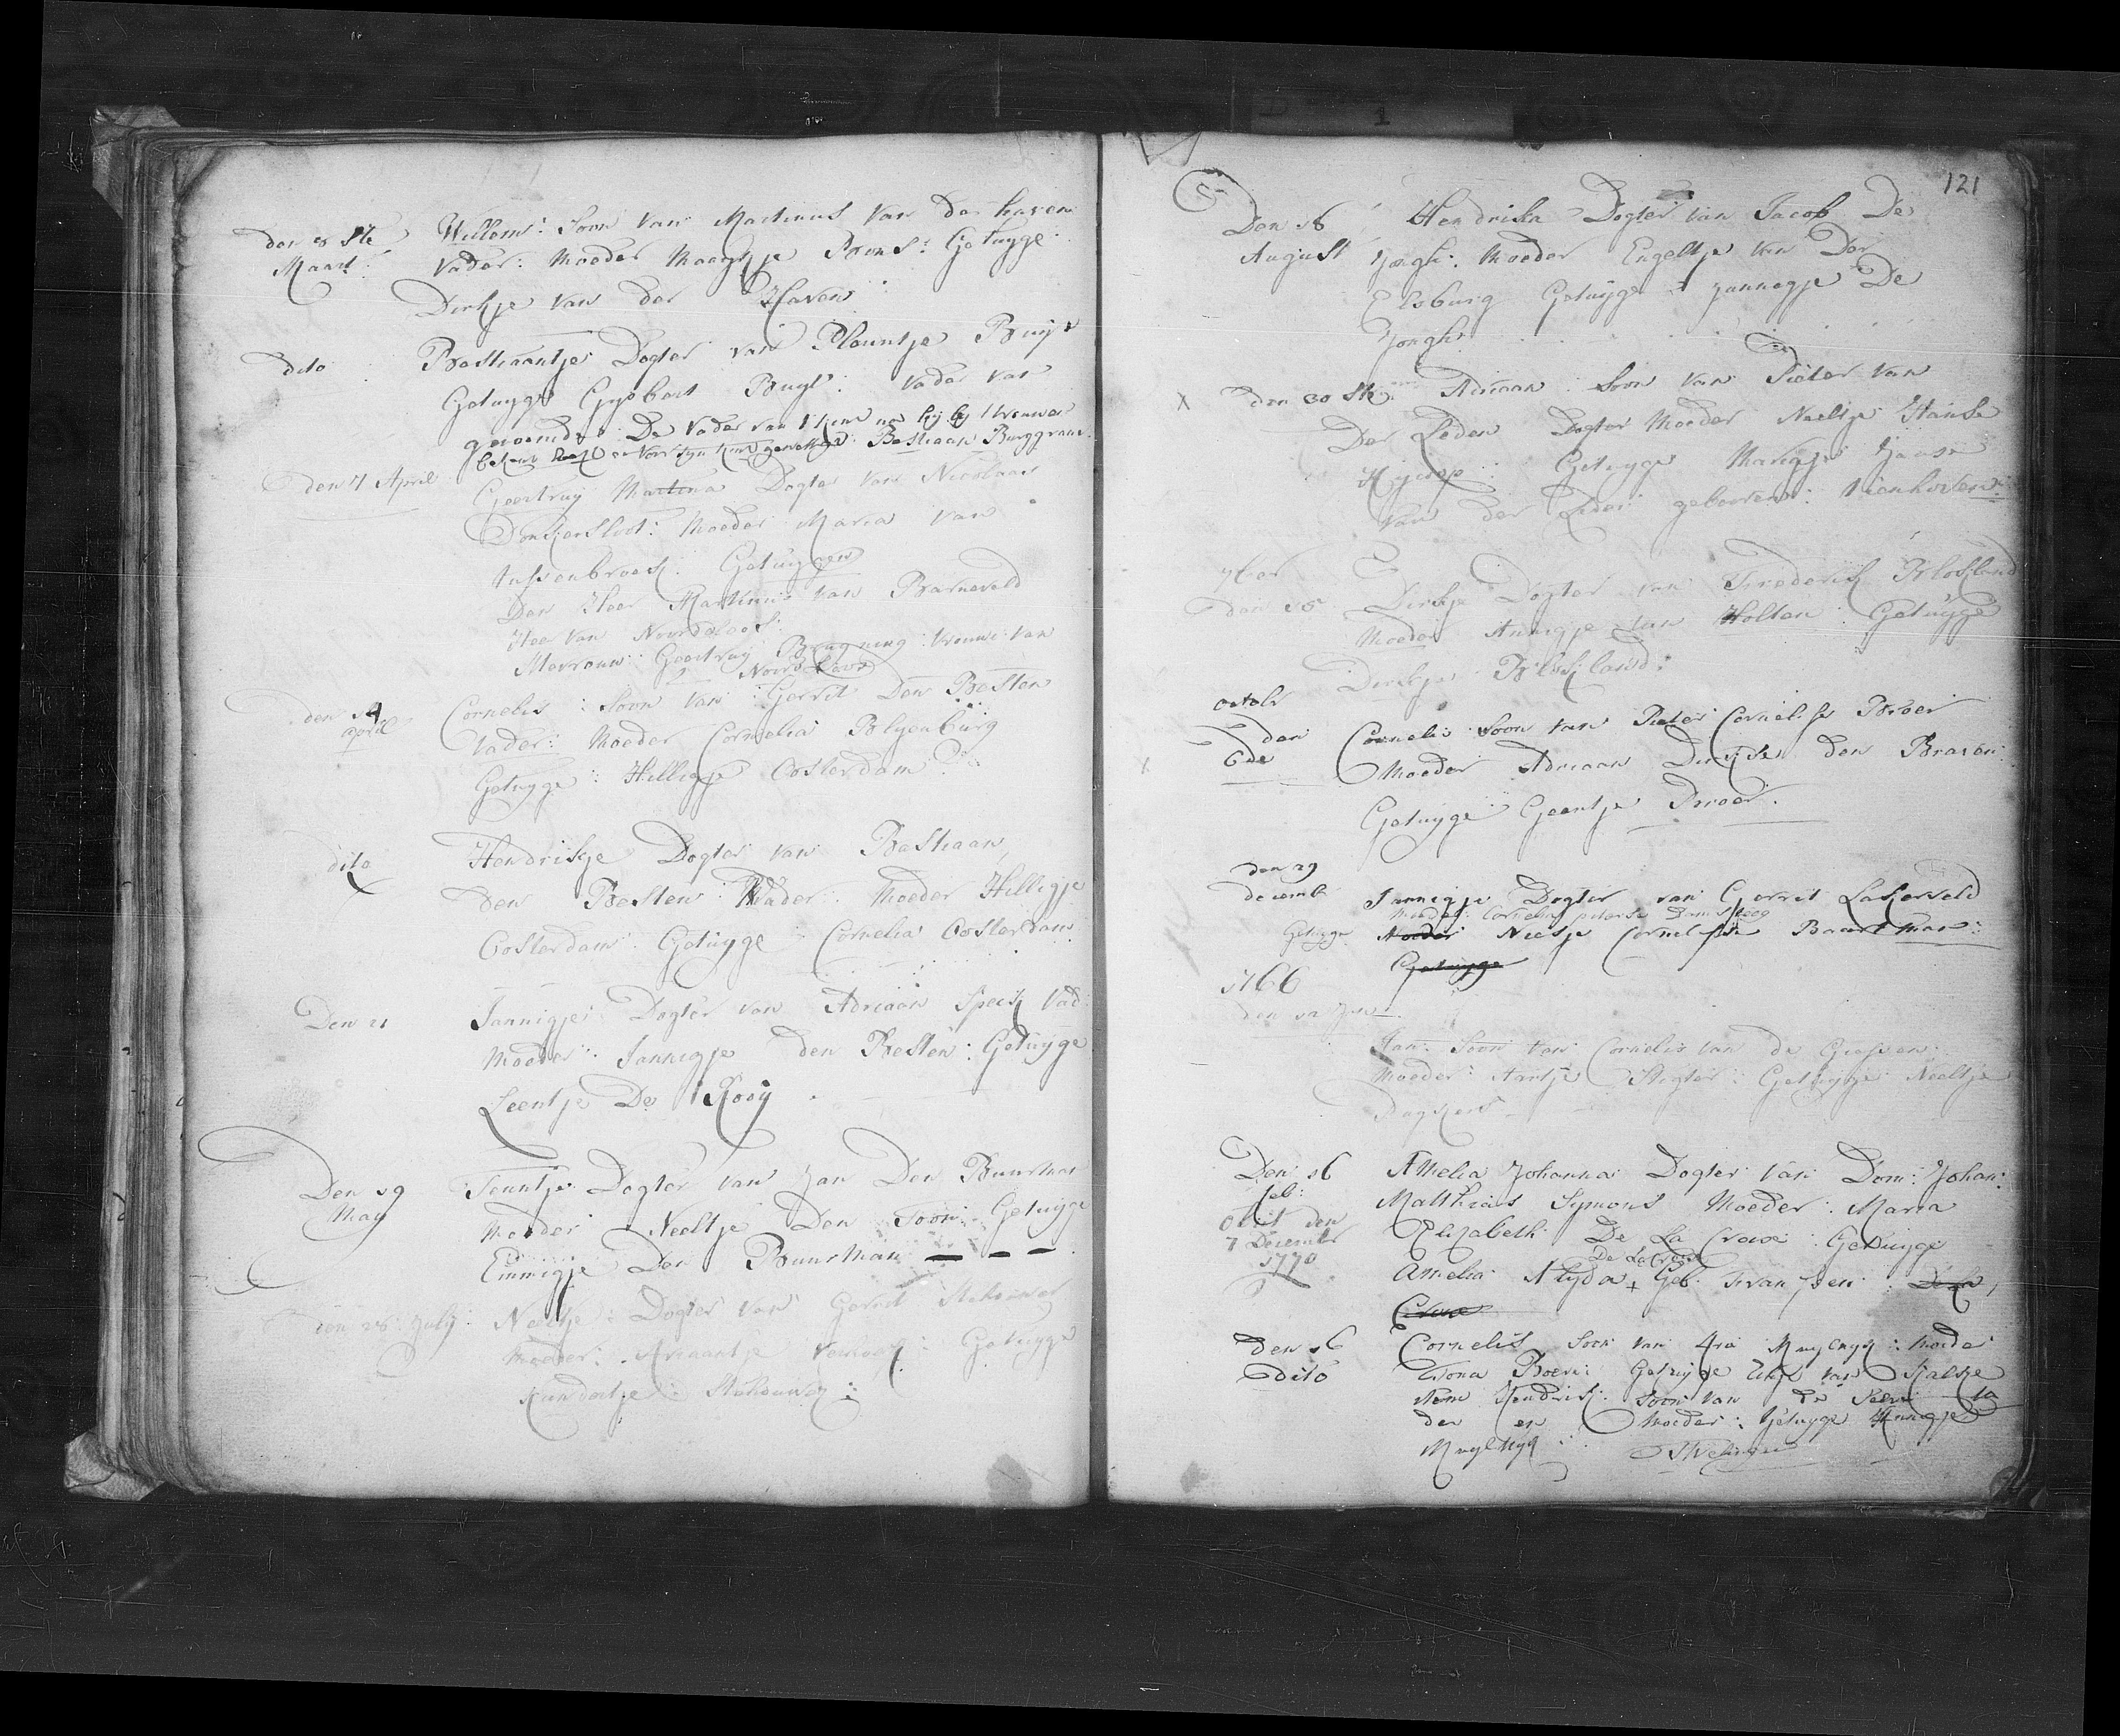 den 8ste Willem: Soon van Martinus van der haven
Maart: Vader: Moeder Maegje Pons: Getuyge
Dirkje van der Haven
dito Bastiaantje Dogter van Pleuntje Buijs
Getuyge Gysbert Buys: Vader van
genoemde. De Vader van 't kint na hij by 't vrouwe
bekent heeft en voor syn kint gewettigt Bastiaan Burggraav
den 7 April Geertruy Martina Dogter van Nicolaas
Donkersloot: Moeder Maria van
tussenbroek. Getuygen
Den Heer Martinus van Barneveld
Heer van Noordeloos:
Mevrouw: Geertruy Vrouwe van
Noordeloos
den 14 Cornelis: Soon van: Gerrit Den Besten
April Vader: Moeder Cornelia Blyenburg
Getuyge: Hilligje Oosterdam
dito Hendrikje Dogter van Bastiaan
Den Besten: Vader: Moeder Hilligje
Oosterdam. Getuyge Cornelia Oosterdam
Den 21 Jannigje: Dogter van Adriaan Speek Vad:
Moeder: Jannigje den Besten: Getuyge
Leentje De Rooy
Den 19 Teuntje: Dogter van Jan Den Buurman
May Moeder Neeltje Den Toom: Getuyge
Emmigje Den Buurman — — —
den 28: July: Neeltje: Dogter van Gerrit Stuhouwer
Moeder: Ariaantje Verhoek: Getuyge
Stuhouwer:
121
Den 16 Hendrika Dogter van Jacob De
August Jongh: Moeder Engeltje van Der
Elsburg Getuyge: Jannegje De
Jongh
X den 30ste Adriaan: Soon van Pieter van
Der Leden Dogter Moeder Neeltje Hanse
Getuyge Marigje Janse
van der Leden geboren:
7ber
den 15 Dirkje Dogter van Frederik Blokland
Moeder Annigje van Holten: Getuyge
Dirkje Blokland:
octobr
den Cornelis Soon van Pieter Cornelisse Broer
6de Moeder Adriaan Dirkse den Braven:
Getuyge Geertje Broer.
den 29
decemb Jannigje Dogter van Gerrit Lakerveld
Moeder: Cornelia pieterse
Getuyge Moeder Neesje Cornelisse Baartman:
Getuyge
1766
den 12 Jan
Jan: Soon van Cornelis van de Giessen:
Moeder: Aartje Stigter: Getuyge Neeltje
Den 16 Amelia Johanna Dogter van Dom: Johan:
feb: Matthias Symons Moeder: Maria
Obiit den Elizabeth De La Croix: Getuyge
7 December De La Croix
1770 Amelia Alyda + Geb: Franssen: De La
Croix
Den 16 Cornelis Soon van Arie Muylwyk: Moeder
dito Boer: Getuyge van
Hendrik: Soon van De
der en Moeder: Getuyge Annigje
Muylwyk